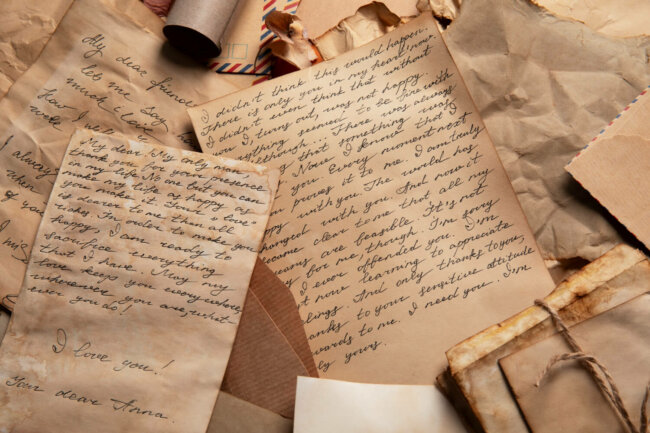 My dear friend
Let me say
much I love
how I
I always
when
of yo
My dear, My only man
thank you for your presence
in my life. No one but you can
make my life as happy as
you made it. love's
is dearer to me than all
riches. In order to make you
happy, I am ready to
sacrifice everything
that I have. May my
love keep you everywhere,
wherever you are, what-
ever you do!
I love you!
Your dear Anna.
I didn't think this would happen.
There is only you in my heart now
I didn't even think that without
you I, turns out, was not happy.
Everything seemed to be fine with
although... There was always
that something was
Now I know that
you. Every moment next
proves it to me. I am truly
happy with you. The world has
changed with you. And now it
became clear to me that all my
dreams are feasible. It's not
for me, though. I'm sorry
I ever offended you. I'm
now learning to appreciate
lings. And only thanks to you,
anks to your sensitive attitude
wards to me. I need you. I'm
ly yours.